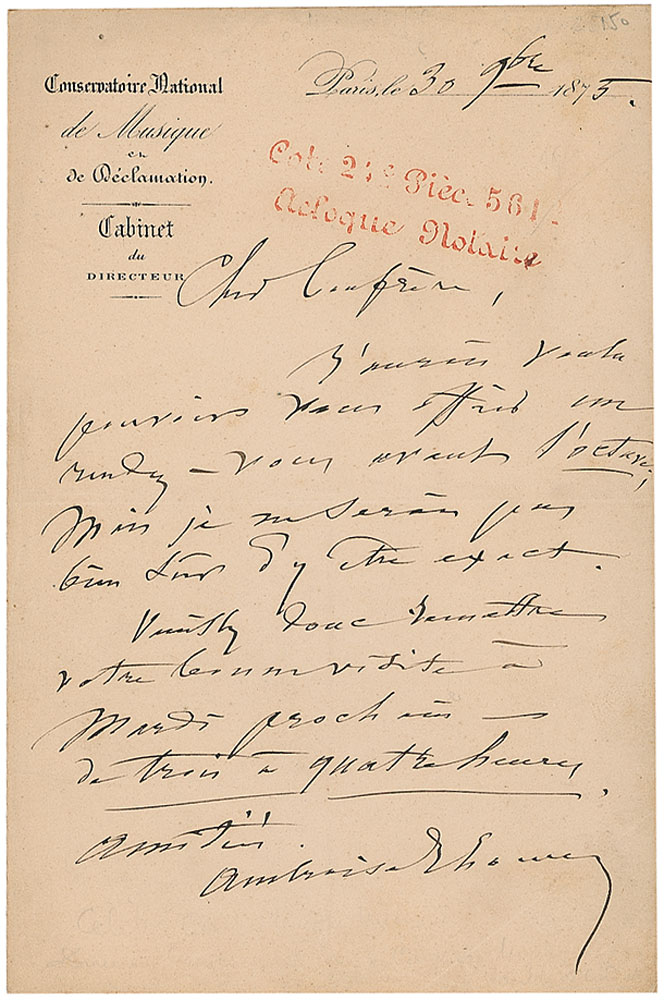 150
Conservatoire National
de Musique
et
de Déclamation.
Cabinet
du
DIRECTEUR
Paris, le 30 9bre 1875.
Cote 24e Pièce 561
Acloque Notaire
Cher Confrère,
J'aurais voulu
pouvoir vous offrir un
rendez-vous avant l'octave;
Mais je ne serais pas
bien sûr d'y être exact.
Veuillez donc remettre
votre bonne visite à
Mardi prochain —
de trois à quatre heures.
Amitiés.
Ambroise Thomas